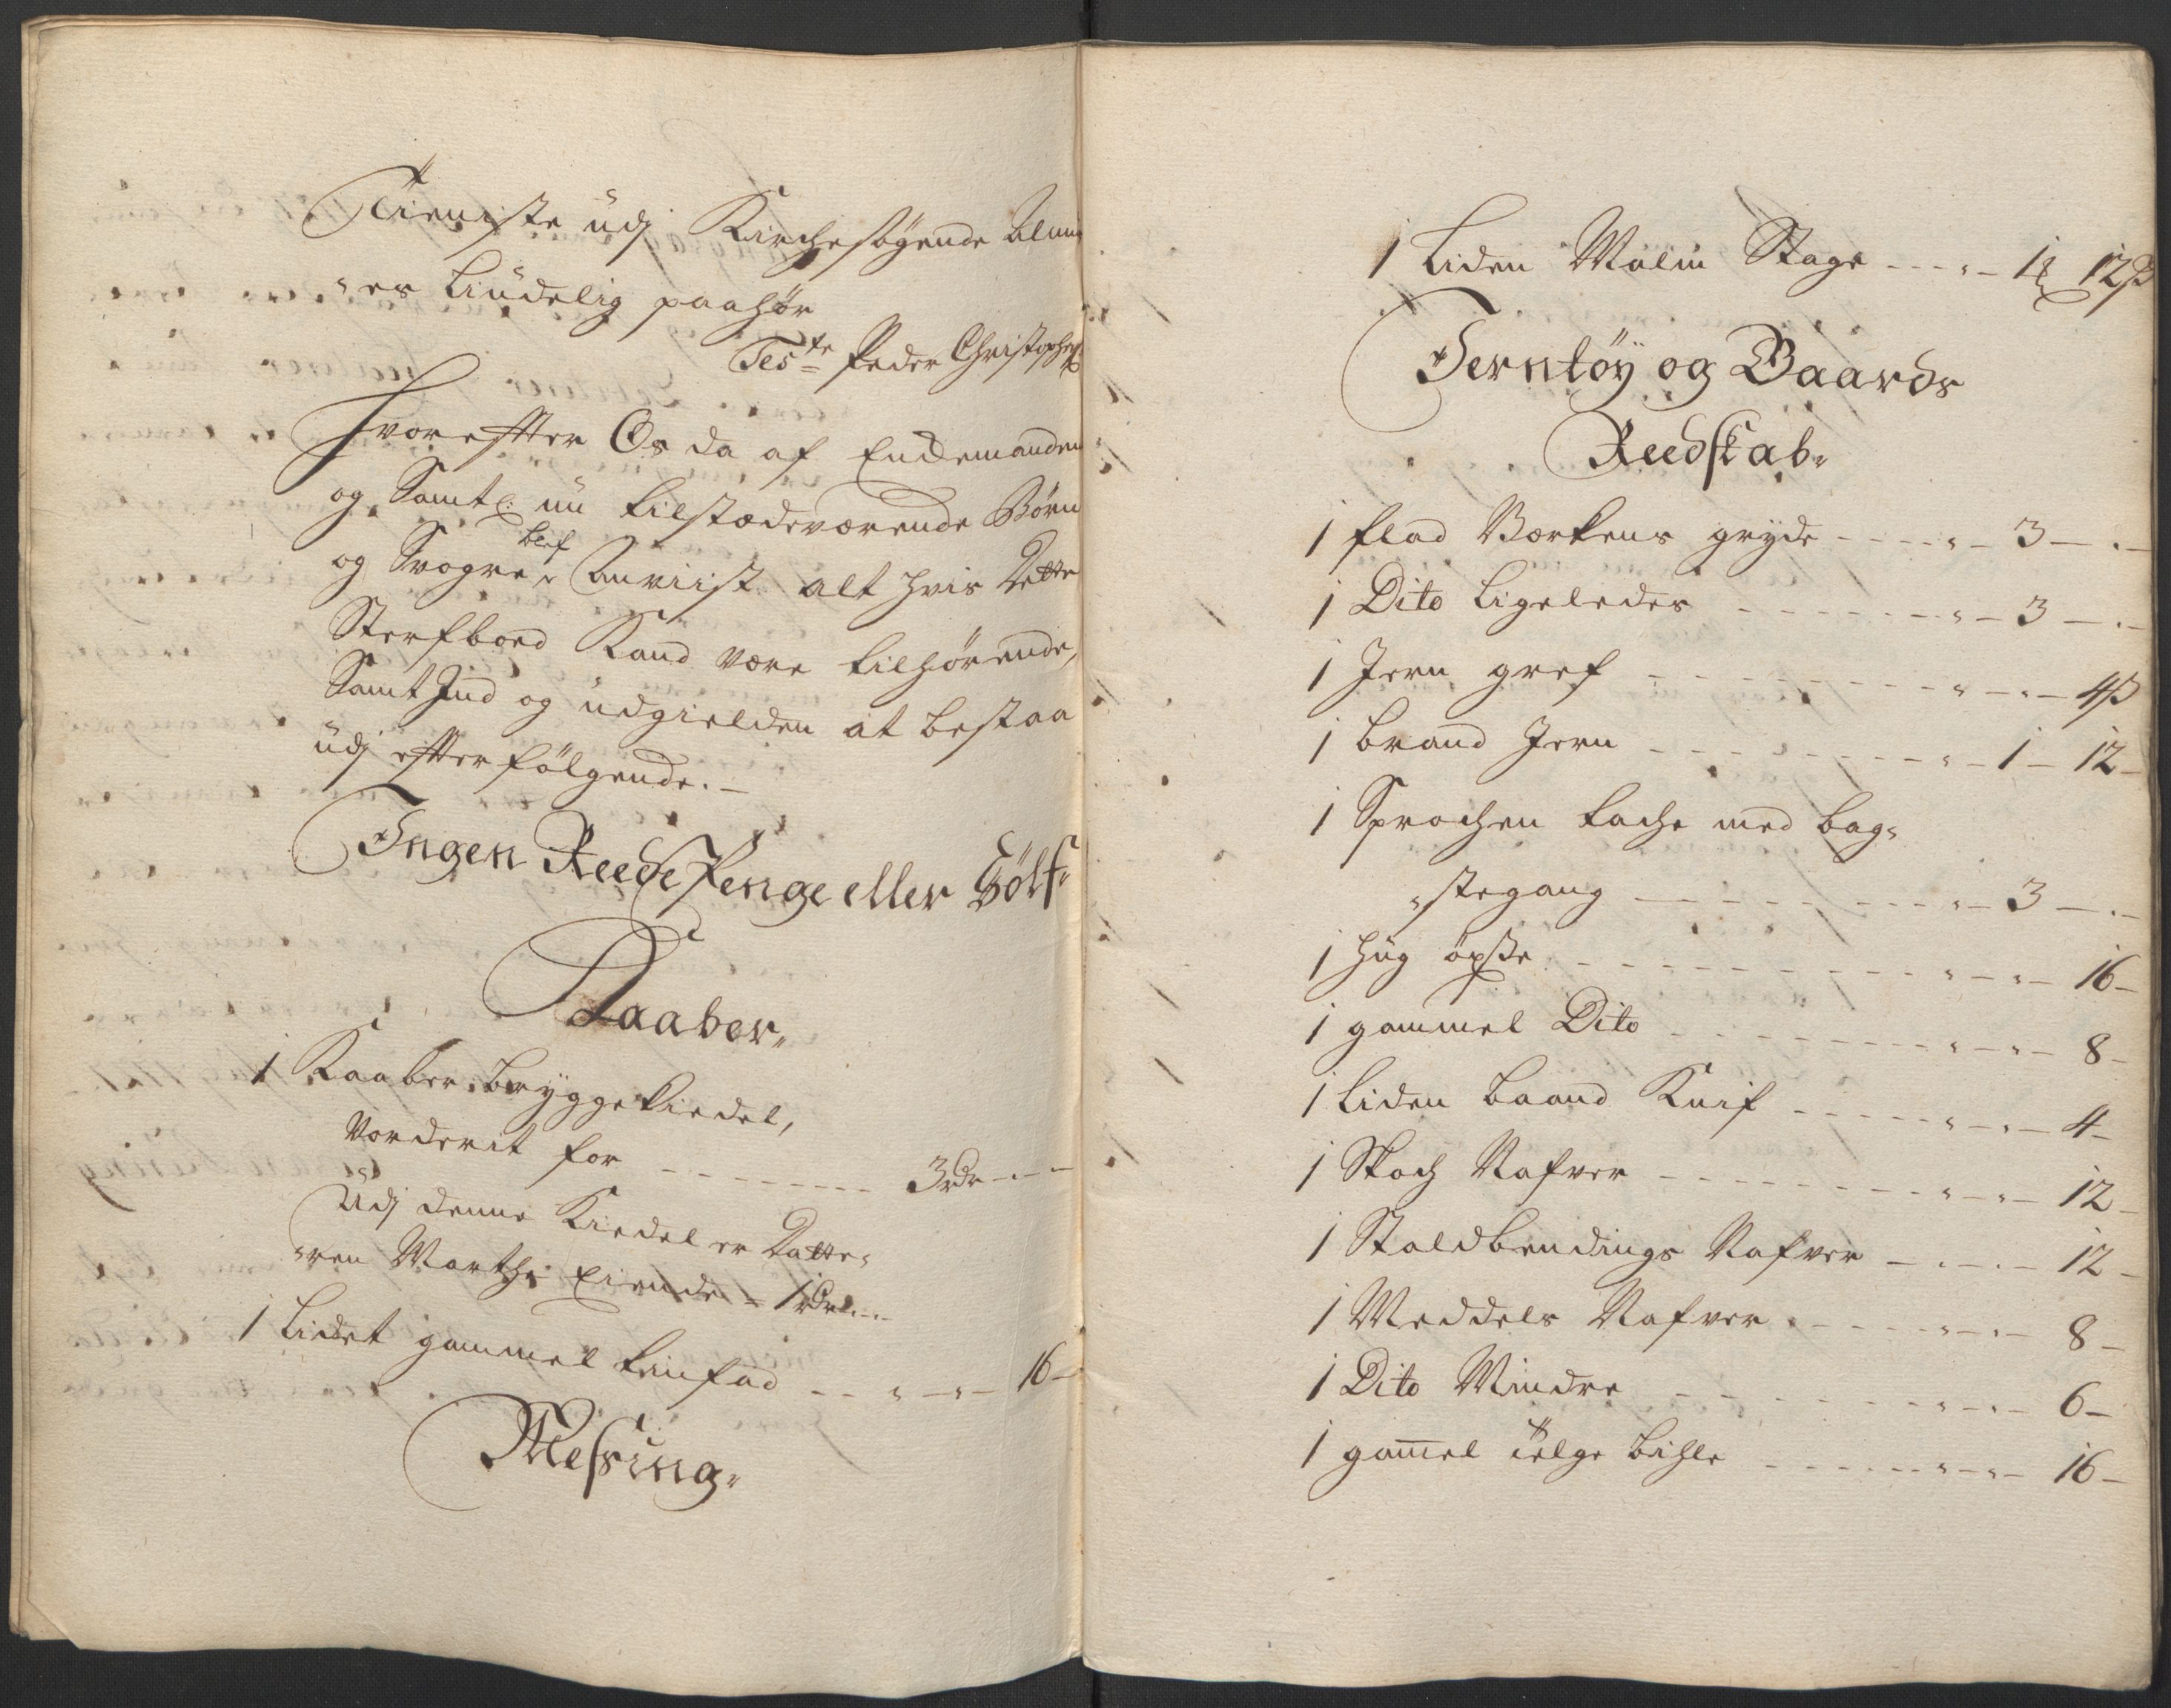 Tieniste udj Kirchesøgende Almu
"es liudelig paahør
Teste Peder Christophers:
Hvorefter Os da af Enckemanden
og Samtl: nu tilstædeværende Børn
og Svogre, blef Anviist alt hvis Dette
Sterfboed Kand være tilhørende,
Samt Ind og udgielden at bestaa
udj efterfølgende.
Ingen Reede Penge eller Sølf"
Kaaber"
1 Kaaber bryggekiedel,
Vorderit for 3 rdr
Udj denne Kiedel er Datte"
"ren Marthe Eiende 1 rdr
1 Lidet gammel 16
Messing"
1 Liden Malm Stage 1 12 ß
Jerntøy og Baards
Reedskab"
1 flad Værkens gryde 3
1 Dito Ligeledes 3
1 Jern gref 4 ß
1 brand Jern 1 12
1 Sprochen kache med bag"
"stegang 3
1 hug øxse 16
1 gammel Dito 8
1 liden baand Knif 4
1 Stoch Nafver 12
1 Staldbendings Nafver 12
1 Meddels Nafver 8
1 Dito Mindre 6
1 gam̅el telge bihle 16